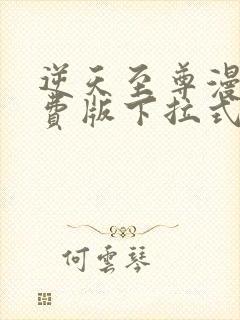 逆天至尊漫
費版下拉式
何雲琴